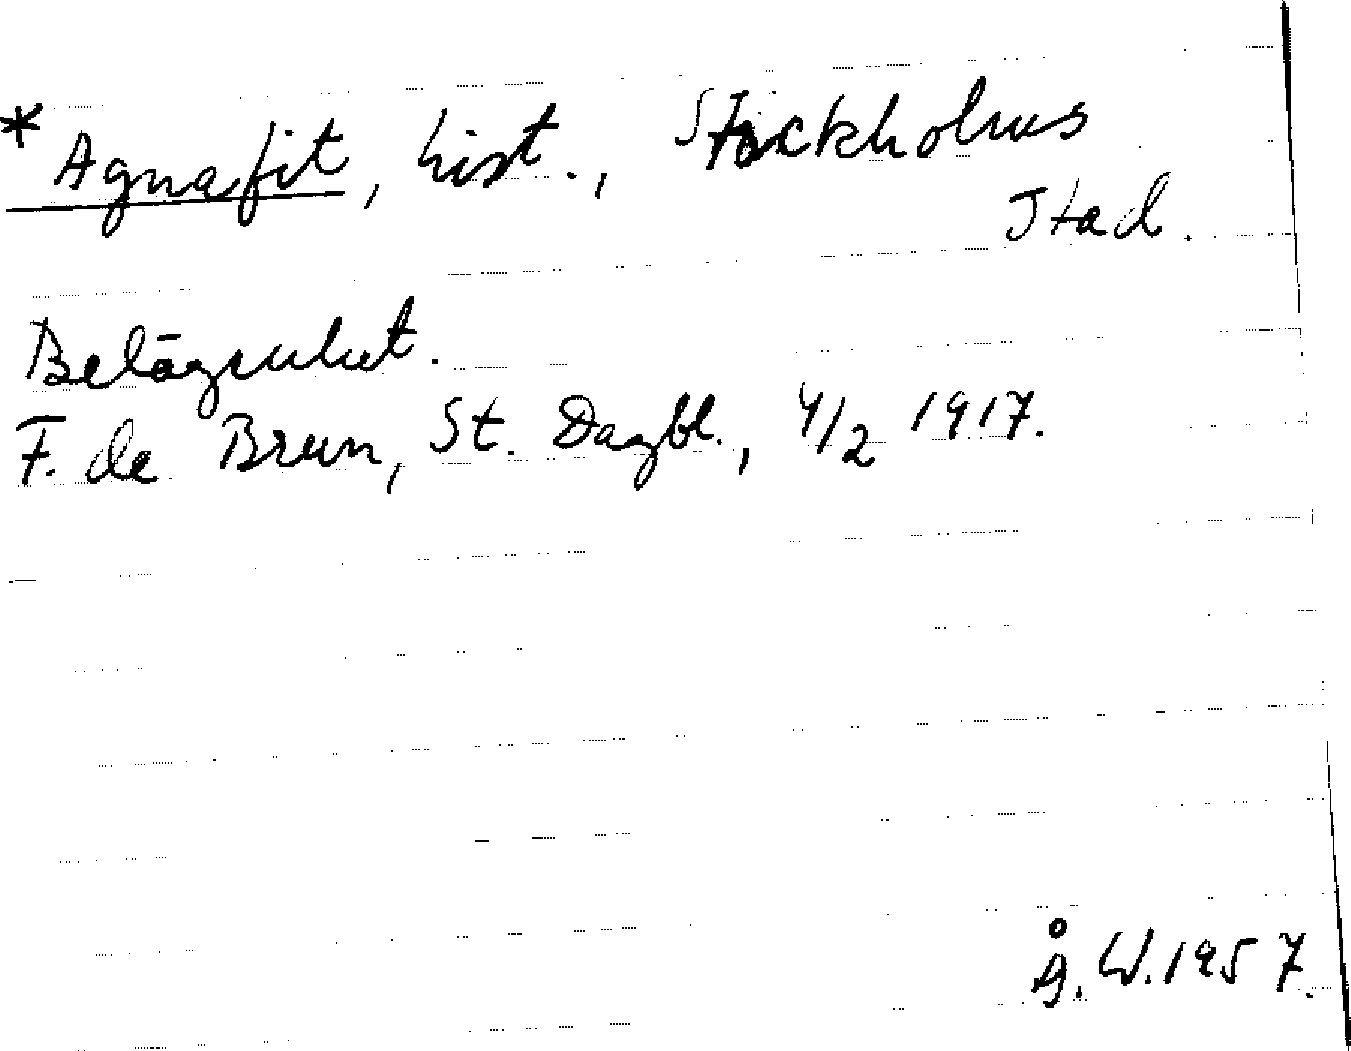 * Agnafit, hist., Stockholms
Stad.
Belägenhet.
F. de Brun, St. Dagbl., 4/2 1917.
Å. W. 1957.